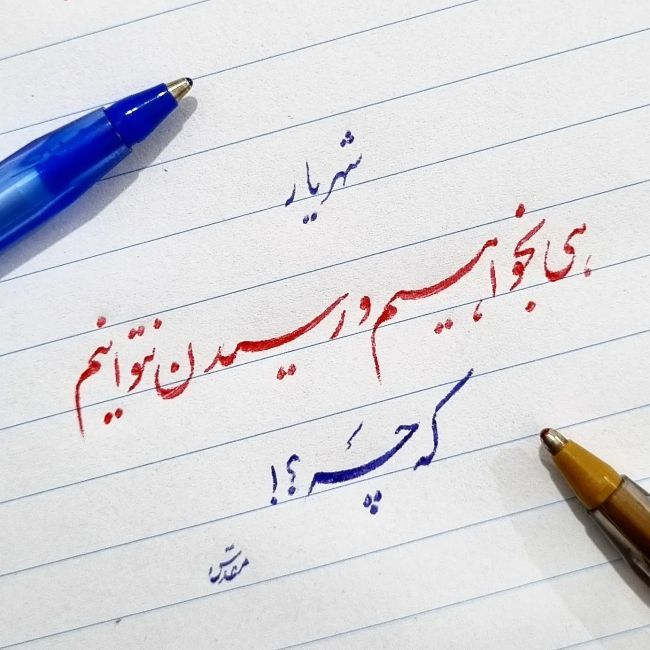 شهریار
هی بخواهیم و رسیدن نتوانیم
که چَه؟!
مقدس